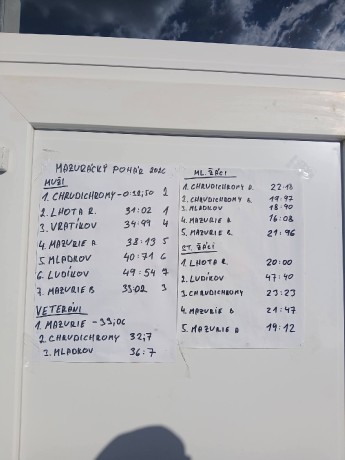 MAZURÁCKÝ POHÁR 2026
MUŽI
1. CHRUDICHROMY - 0:28,50 2
2. LHOTA R. 31:02 1
3. VRATÍKOV 34:99 4
4. MAZURIE A 38:13 5
5. MLADKOV 40:71 6
6. LUDÍKOV 49:54 7
7. MAZURIE B 33:02 3
VETERÁNI
1. MAZURIE - 39,06
2. CHRUDICHROMY 32,7
3. MLADKOV 36:7
ML. ŽÁCI
1. CHRUDICHROMY A. 22:18
2. CHRUDICHROMY B. 19:97
3. MLADKOV 18:40
4. MAZURIE A 16:08
5. MAZURIE B. 21:96
ST. ŽÁCI
1. LHOTA R. 20:00
2. LUDÍKOV 47:40
3. CHRUDICHROMY 23:23
4. MAZURIE B 21:47
5. MAZURIE A 19:12